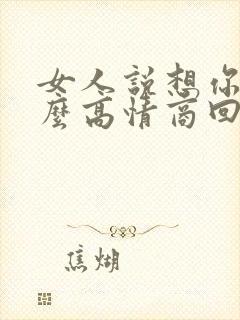 女人說想你
麼高情商回
焦煳